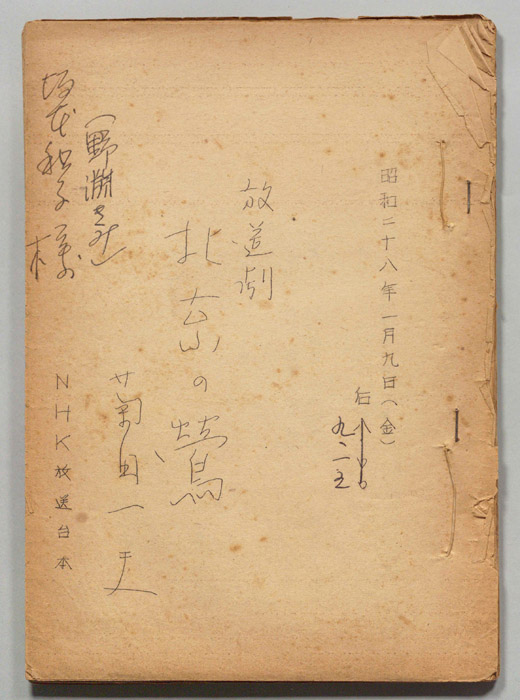 昭和二十八年一月九日(金)
后
九、一五
放送劇
北京の鶯
菊田一夫
NHK放送台本
(野淵
坂本和子様